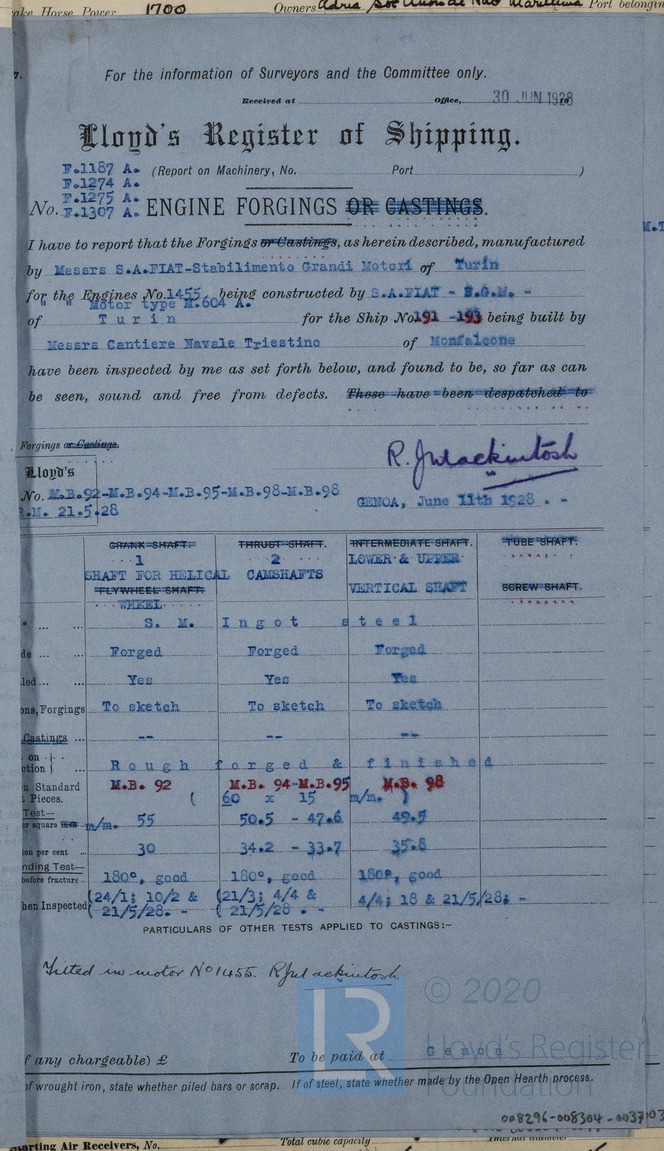 Horse Power 1700 Owners Port belonging
For the information of Surveyors and the Committee only.
Received at Office, 30 JUN 1928
Lloyd's Register of Shipping.
F.1187 A. (Report on Machinery, No. Port )
F.1274 A.
F.1275 A.
No. F.1307 A. ENGINE FORGINGS OR CASTINGS.
I have to report that the Forgings or Castings, as herein described, manufactured
by Messrs S.A.FIAT-Stabilimento Grandi Motori of Turin
for the Engines No.1455, being constructed by S.A.FIAT - S.G.M. -
" " Motor type M.604 A.
of Turin for the Ship No 191 -193 being built by
Messrs Cantiere Navale Triestino of Monfalcone
have been inspected by me as set forth below, and found to be, so far as can
be seen, sound and free from defects. These have been despatched to
Forgings or Castings.
R. J Mackintosh
Lloyd's
No. M.B.92-M.B.94-M.B.95-M.B.98-M.B.98
GENOA, June 11th 1928 . -
.M. 21.5.28
CRANK SHAFT. THRUST SHAFT. INTERMEDIATE SHAFT. TUBE SHAFT.
1 2 LOWER & UPPER
SHAFT FOR HELICAL CAMSHAFTS
FLYWHEEL SHAFT. VERTICAL SHAFT SCREW SHAFT.
WHEEL.
S. M. Ingot steel
Forged Forged Forged
Yes Yes Yes
Forgings To sketch To sketch To sketch
Castings ... -- -- --
on
Rough forged & finished
Standard M.B. 92 M.B. 94-M.B.95 M.B. 98
Pieces. ( 60 x 15 m/m. )
Test—
square m/m. 55 50.5 - 47.6 49.5
per cent 30 34.2 - 33.7 35.8
Test—
before fracture 180°, good 180°, good 180°, good
Inspected (24/1; 10/2 & (21/3; 4/4 & 4/4; 18 & 21/5/28. -
( 21/5/28. - ( 21/5/28 . -
PARTICULARS OF OTHER TESTS APPLIED TO CASTINGS:—
Fitted in motor No 1455. R J Mackintosh
LR © 2020
Lloyd's Register
Foundation
any chargeable) £ To be paid at Genoa
of wrought iron, state whether piled bars or scrap. If of steel, state whether made by the Open Hearth process.
008296-008304-0037
Starting Air Receivers, No. Total cubic capacity Internal diameter